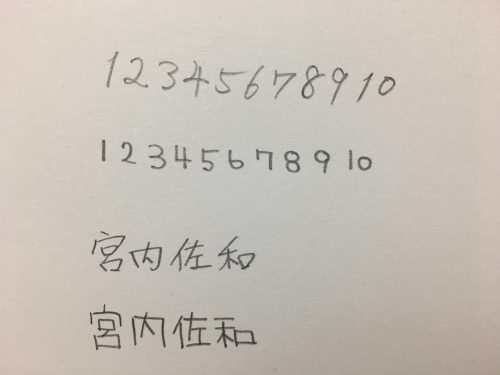 12345678910
12345678910
宮内佐和
宮内佐和